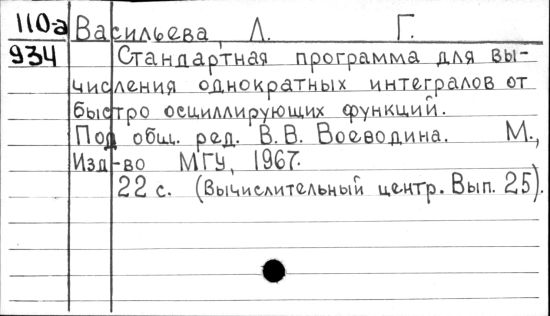 110а Васильева, Л. Г.
934 Стандартная программа для вы-
числения однократных интегралов от
быстро осциллирующих функций.
Под общ. ред. В.В. Воеводина. М.,
Изд-во МГУ, 1967.
22 с. (Вычислительный центр. Вып. 25).